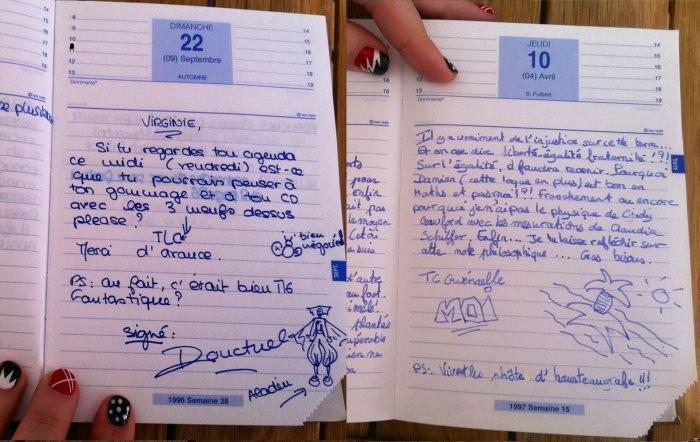 DIMANCHE
22
(09) Septembre
AUTOMNE
8
9
10
11
12
13
14
15
16
17
18
19
Dominante
VIRGINIE,
Si tu regardes ton agenda
ce midi (vendredi) est-ce
que tu pourrais penser à
ton gommage et à ton CD
avec les 3 meufs dessus
please?
TLC
Merci d'avance.
bien négocié
PS: au fait, c'était bien
Fantastique?
signé:
Aladin
SEPT
1996 Semaine 38
JEUDI
10
(04) Avril
S. Fulbert
12
13
14
15
16
17
18
19
Dominante
Il y a vraiment de l'injustice sur cette terre...
Et on ose dire liberté-égalité fraternité!?!
Sur l'égalité, il faudra revenir. Pourquoi
Damien (cette loque en plus) est bon en
Maths et pas moi?!? Franchement ou encore
pourquoi je n'ai pas le physique de Cindy
Crawford avec les mensurations de Claudia
Schiffer. Enfin... Je te laisse réfléchir sur
cette note philosophique... Gros bisous.
TC Gwénaelle
MOI
PS: Vive les
AVRIL
1997 Semaine 15